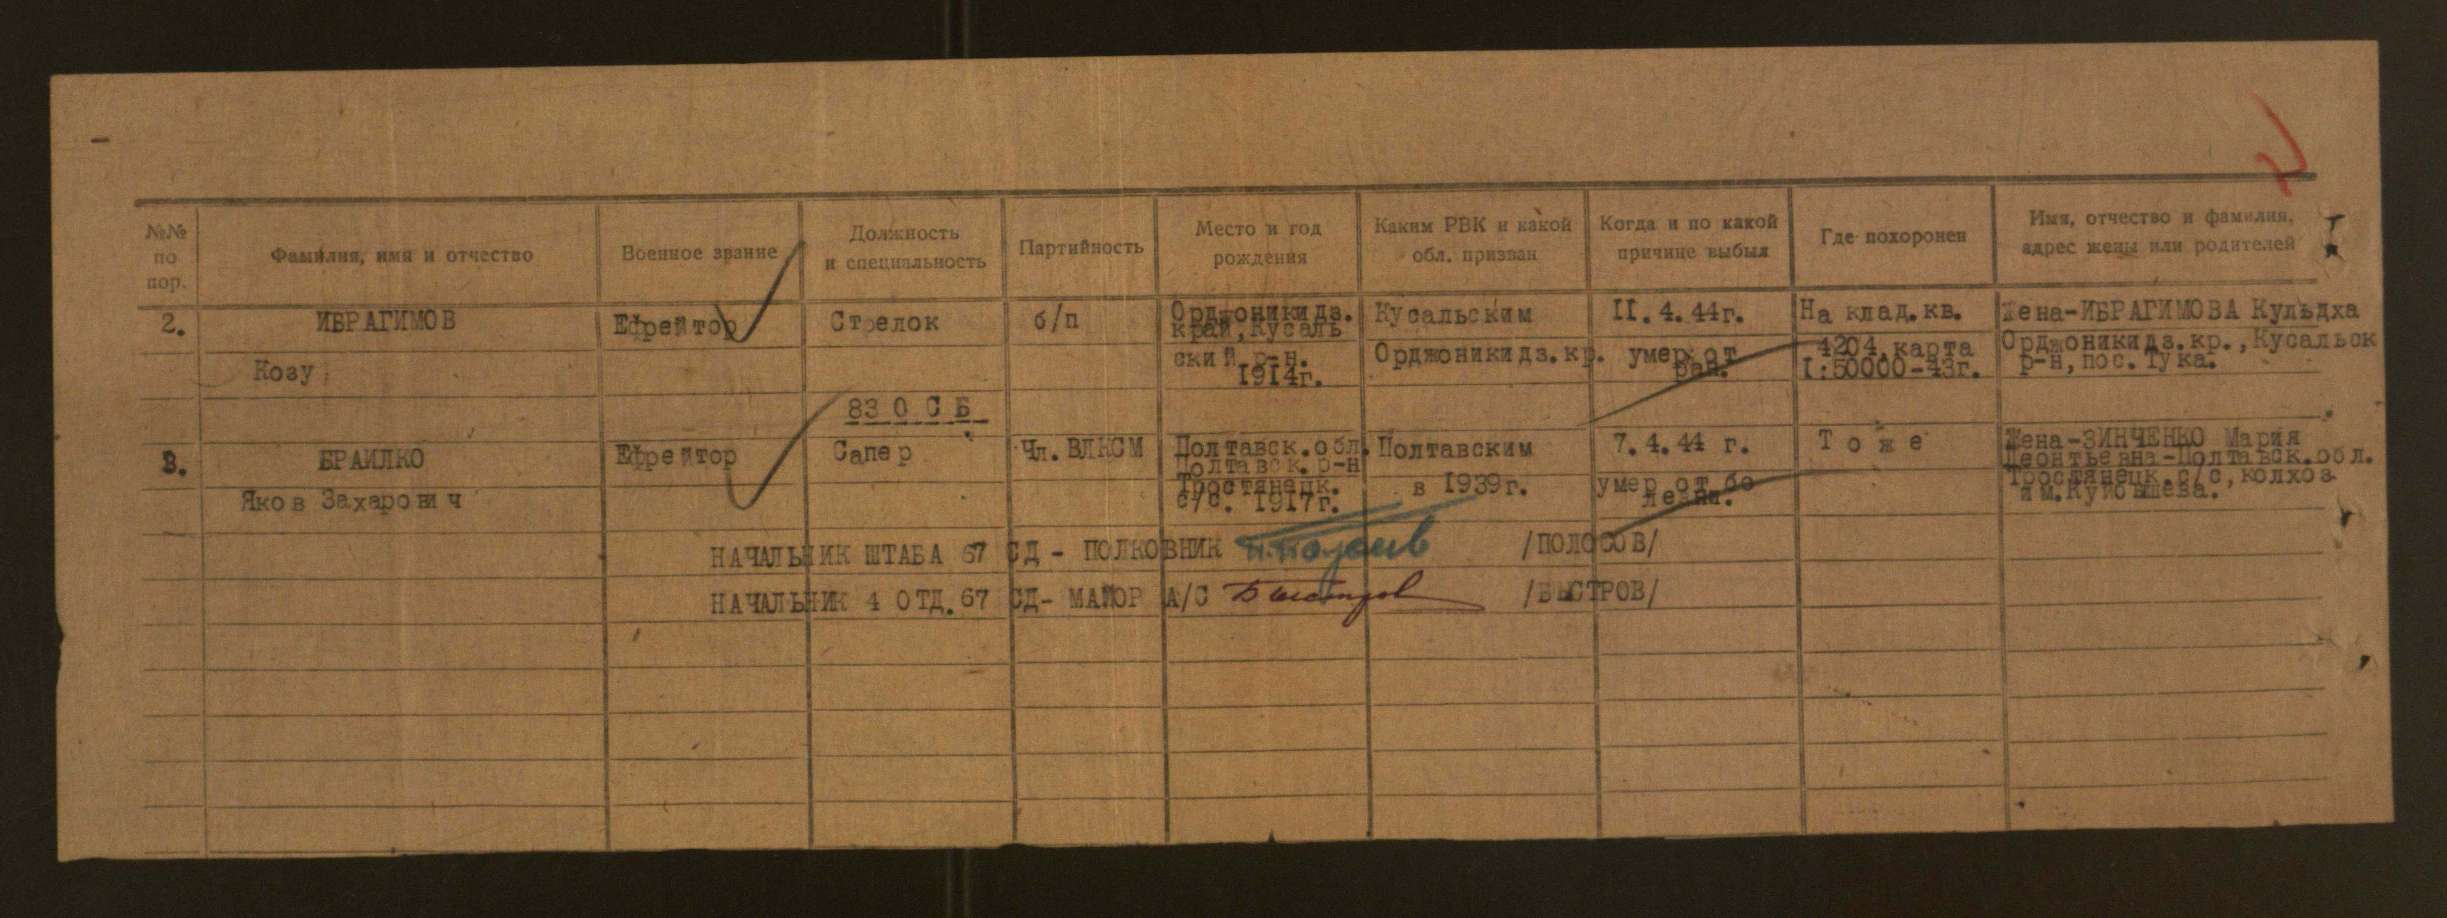 №№ по пор.
Фамилия, имя и отчество
Военное звание
Должность и специальность
Партийность
Место и год рождения
Каким РВК и какой обл. призван
Когда и по какой причине выбыл
Где похоронен
Имя, отчество и фамилия, адрес жены или родителей
2.
ИБРАГИМОВ
Козу
Ефрейтор
Стрелок
б/п
Орджоникидз.
край, Кусаль
ский р-н.
1914г.
Кусальским
Орджоникидз.кр.
II.4.44г.
умер от
ран.
На клад.кв.
4204 карта
I:50000-43г.
Жена-ИБРАГИМОВА Кульдха
Орджоникидз.кр.,Кусальск
р-н,пос.Тука.
83 О С Б
3.
БРАИЛКО
Яков Захарович
Ефрейтор
Сапер
Чл.ВЛКСМ
Полтавск.обл.
Полтавск.р-н
Тростянецк.
с/с. 1917г.
Полтавским
в 1939г.
7.4.44 г.
умер от бо
лезни.
Т о ж е
Жена-ЗИНЧЕНКО Мария
Леонтьевна-Полтавск.обл.
Тростянецк.с/с,колхоз
им.Куйбышева.
НАЧАЛЬНИК ШТАБА 67 СД - ПОЛКОВНИК
/ПОЛОСОВ/
НАЧАЛЬНИК 4 ОТД. 67 СД- МАЙОР А/С Быстров /БЫСТРОВ/